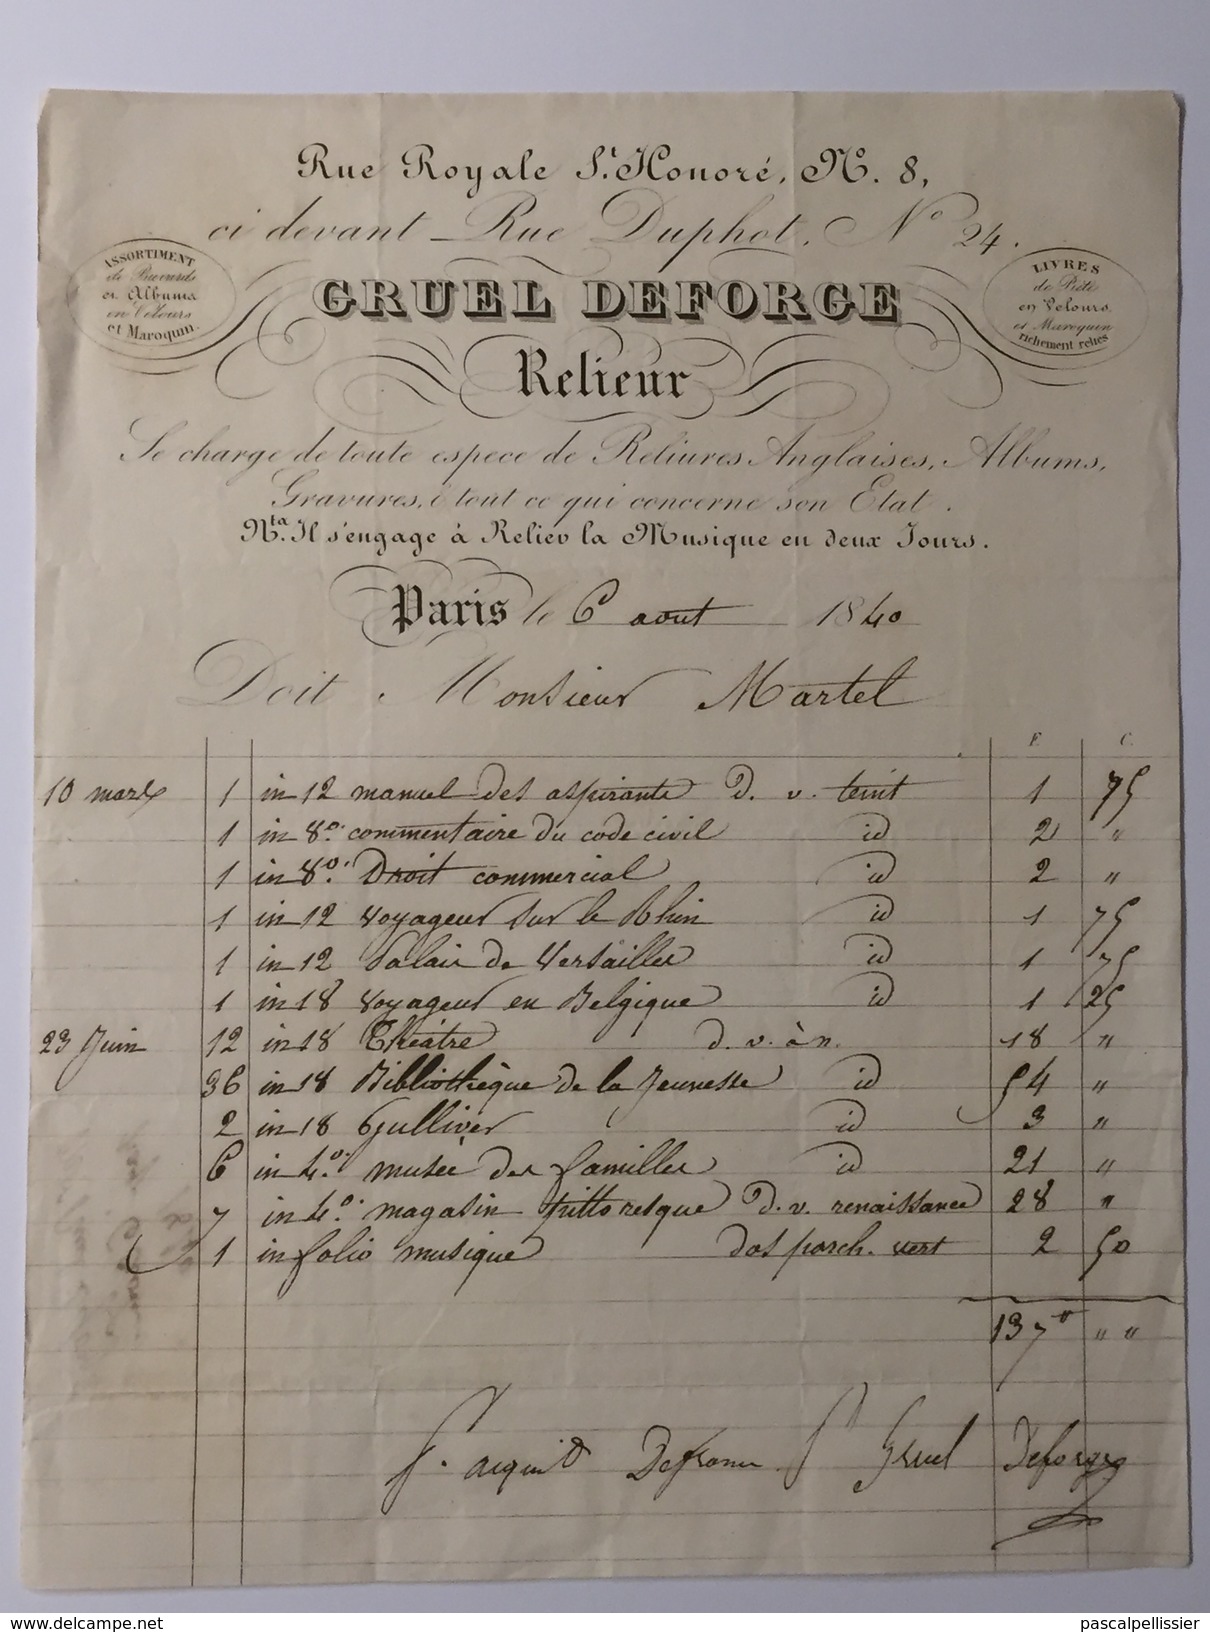 Rue Royale St. Honoré, No. 8,
ci devant Rue Duphot, No 24.
ASSORTIMENT
de Buvards
et Albums
en Velours
et Maroquin.
GRUEL DEFORGE
LIVRES
de Piété
en Velours
et Maroquin
richement reliés
Relieur
Se charge de toute espece de Reliures Anglaises, Albums,
Gravures, & tout ce qui concerne son Etat.
Nta. Il s'engage à Relier la Musique en deux Jours.
Paris le 6 aout 1840
Doit Monsieur Martel
F. C.
10 mars 1 in 12 manuel des aspirants d. v. teint 1 75
1 in 8o. commentaire du code civil id 2 "
1 in 8o. Droit commercial id 2 "
1 in 12 voyageur sur le Rhin id 1 75
1 in 12 Palais de Versailles id 1 75
1 in 18 voyageur en Belgique id 1 25
23 Juin 12 in 18 Théâtre d. v. à n. 18 "
36 in 18 Bibliothèque de la Jeunesse id 54 "
2 in 18 Gulliver id 3 "
6 in 4o. musée des familles id 21 "
7 in 4o. magasin pittoresque d. v. renaissance 28 "
1 in folio musique dos parch. vert 2 50
137 " " "
P. acquit Gruel Deforge
pascalpellissier